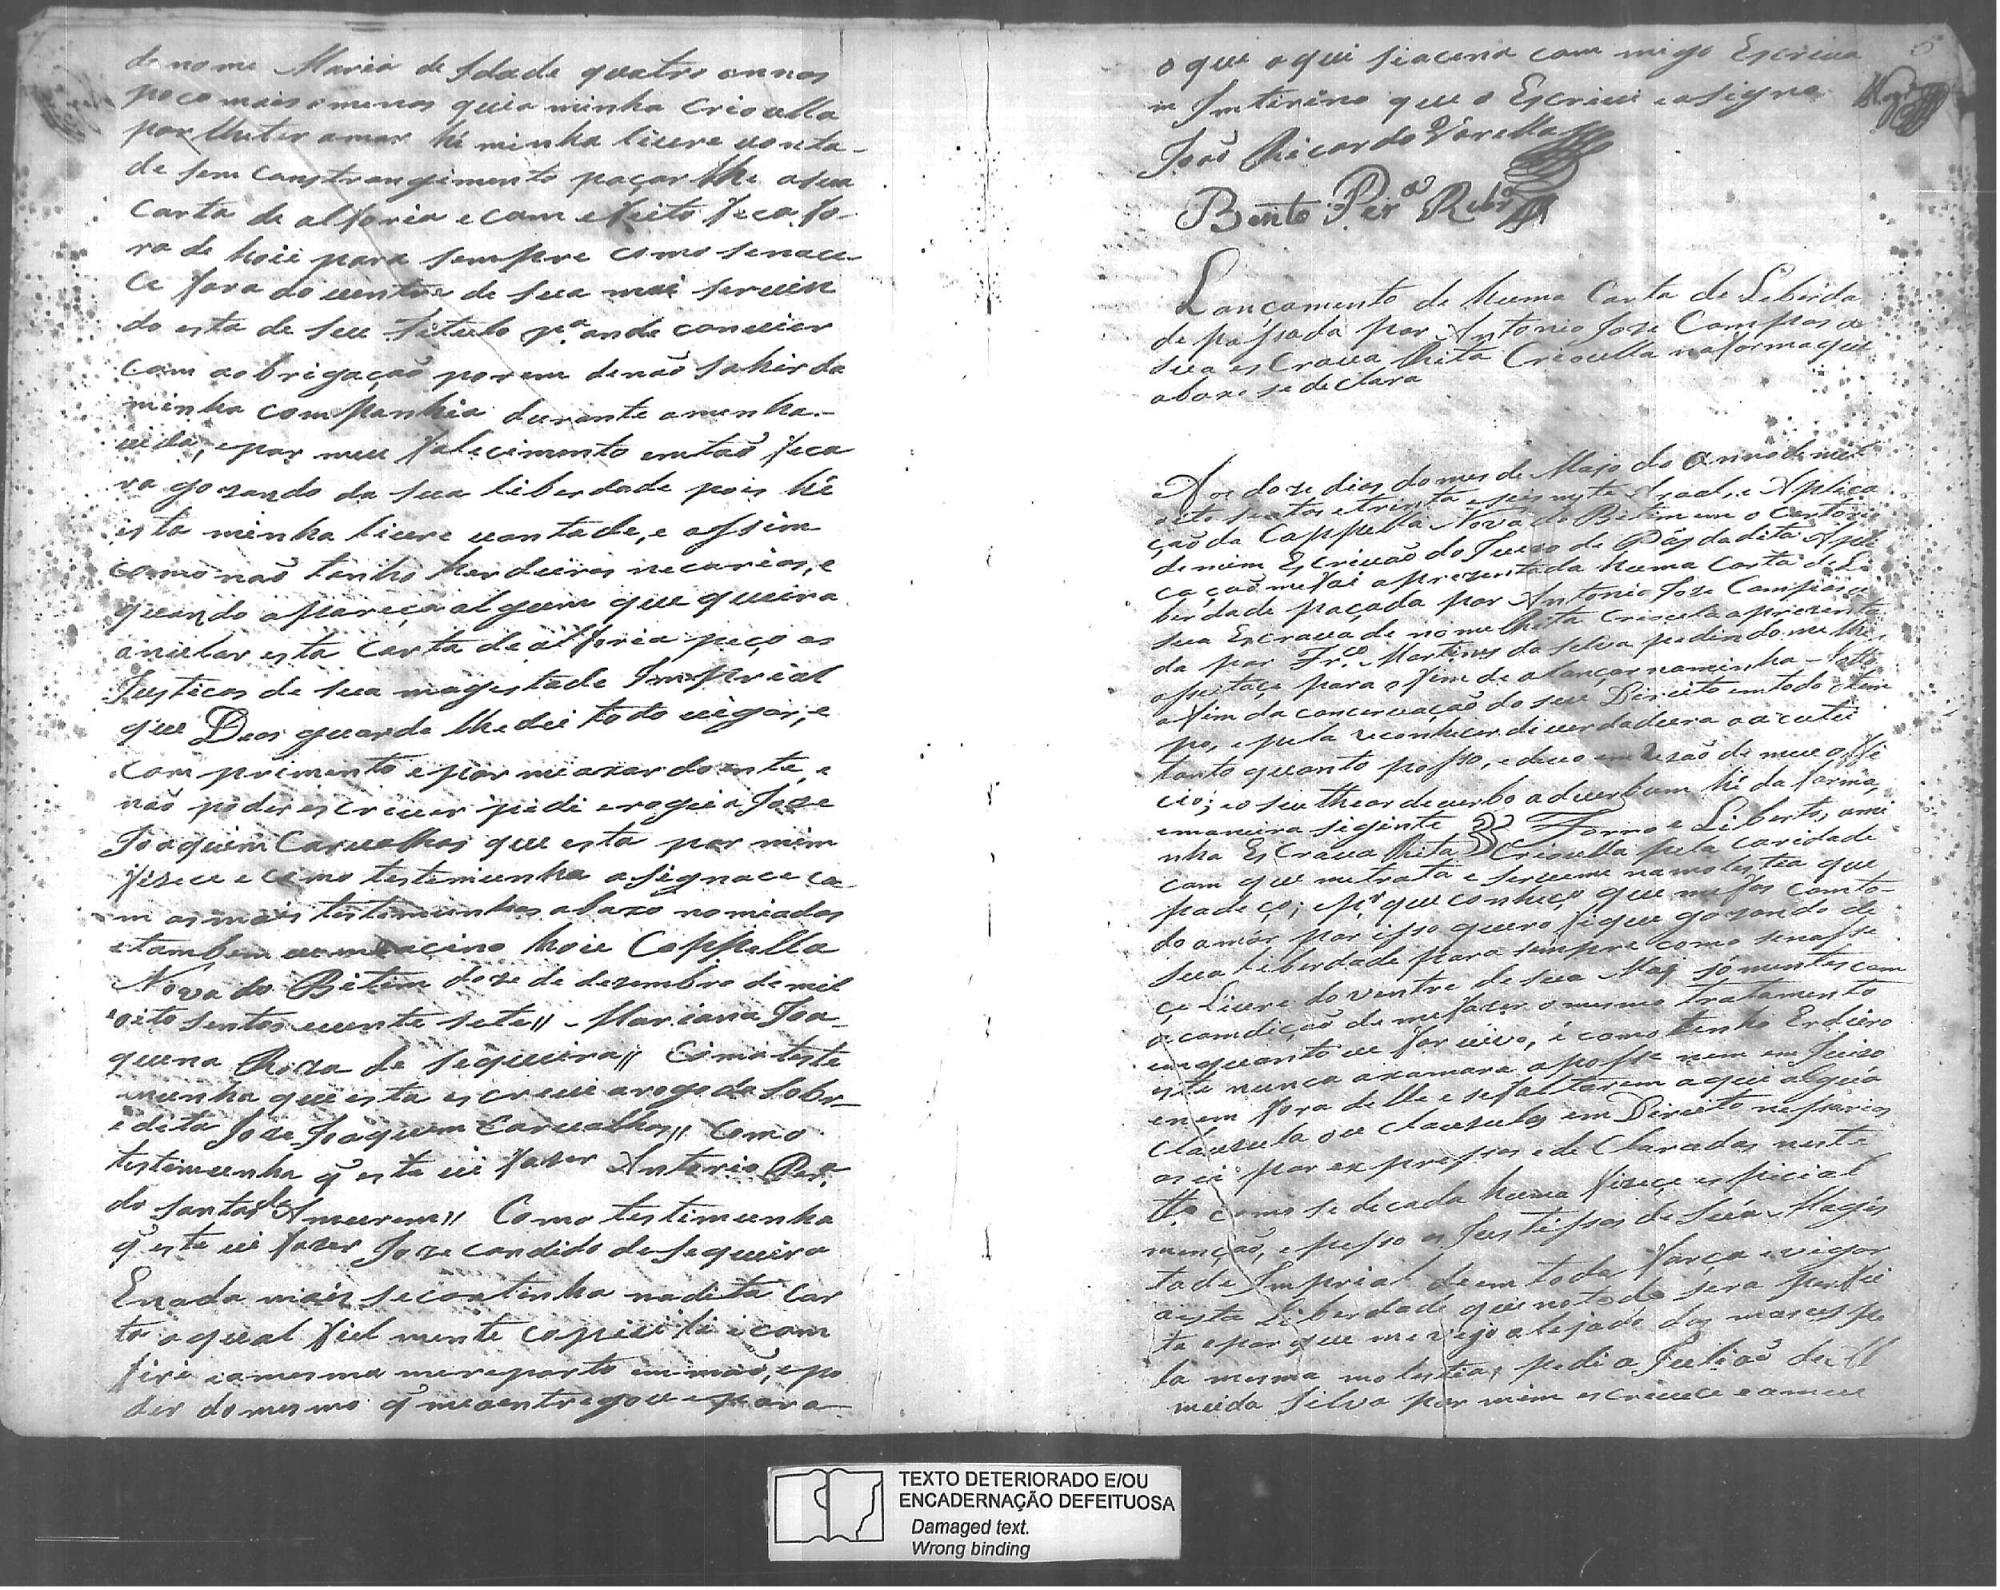 de nome Maria de Idade quatro annos
poco mais o menos quia minha crioulla
por lhe ter amor hé minha livre vonta-
de sem constrangimento paçar lhe a sua
carta de alforia e com efeito feca fo-
ra de hoie para sempre como senace-
ce fora do ventre de sua mai servin
do esta de seu Titulo pª onde convier
com aobrigação porem de não sahir da
minha companhia durante amenha
vida, epor meu falecimento emtão feca
va gozando da sua liberdade pois hé
esta minha livre vontade, e assim
como não tenho herdeiros necarios, e
quando apareça algum que queira
anielar esta Carta de alforia peço as
Justicas de sua magestade Imprial
que Deos guarde lhe dei todo vigor, e
comprimento epor meaxar doente, e
não poder escrever pedi erogui a Joze
Joaquim Carvalhos que esta por mim
fizece e como testemunha asignace co
m as mais testemunhas abaxo nomiadas
etambem asino hoie Cappella
Nova do Betim doze de dezembro de mil
oito sentos vente sete// - Mariana Joa-
quena Roza de Sequeira// Como teste
munha que esta escrevi arogo da Sobr-
e dita Joze Joaquim Carvalhos// Como
testemunha q̃ esta vi fazer Antonio Perª
do Santos Amurem// Como testimunha
q̃ esta vi fazer Joze candido de Sequeira
Enada mais secontinha nadita Car
ta aqual fiel mente copiei li e com
firi eamesma mereporto em mão, epo
der do mesmo q̃ meentregou epara
5
o que aqui siacena com migo Escriva
m Imterino que o Escrivi easigno
João Ricardo Varella
Bento Perª Ribr
Lançamento de huma Carta de Leberda
de passada por Antonio Joze Campos a
sua esCrava Rita Crioulla na forma que
abaxo se declara
Aos doze dias do mes de Majo do anno de mil
oito sentos etrinta eseis neste Araal, e Aplica
ção da Cappella Nova do Betim em o Cartorio
de mim Escrivão do Juizo de Pás da dita Apli
cação me foi apresentada huma Carta de Li
berdade paçada por Antonio Joze Campos a
sua Escrava de nome Rita Crioula apresenta
da por Frº Martins da Silva pedindo me lhe
aseitace para o fim de alançar naminha Notta
afim da concervação do seu Direito emtodo otem
po, epela reconhecer di verdadeira aacutei
tanto quanto posso, edevo em rezão de meu ofi
cio; eo seu thear deverbo adverbum hé da forma,
emaneira siginte Forro e Liberto, ami
nha EsCrava Rita Crioulla pela caridade
com que metrata e serveme namolestia que
padeço; epr que conheço que mefas comto-
do amor por isso quero fique gozando de
sua liberdade para sempre como senasse
ce Livre do ventre de sua Maj sómentes com
acomdição de mefazer omesmo tratamento
emquanto eu for vivo, é como tenho Erdiero
este nunca axamara aposse nem em Juizo
enem fora delle esefaltarem aqui alguã
cláuzula ou clauzulas em Direito nessarias
asei por expressas ede Claradas neste
como se de cada huma fizeçe especial
menção, epesso as Justissas de Súa Mages
tade Imprial deem toda força evigor
aesta Liberdade que notodo sera perfei
ta eporque mevejo alejado das maons pe
la mesma molestia, pedi a Julião de Al
meida Silva por mim escrevece eameu
TEXTO DETERIORADO E/OU
ENCADERNAÇÃO DEFEITUOSA
Damaged text.
Wrong binding